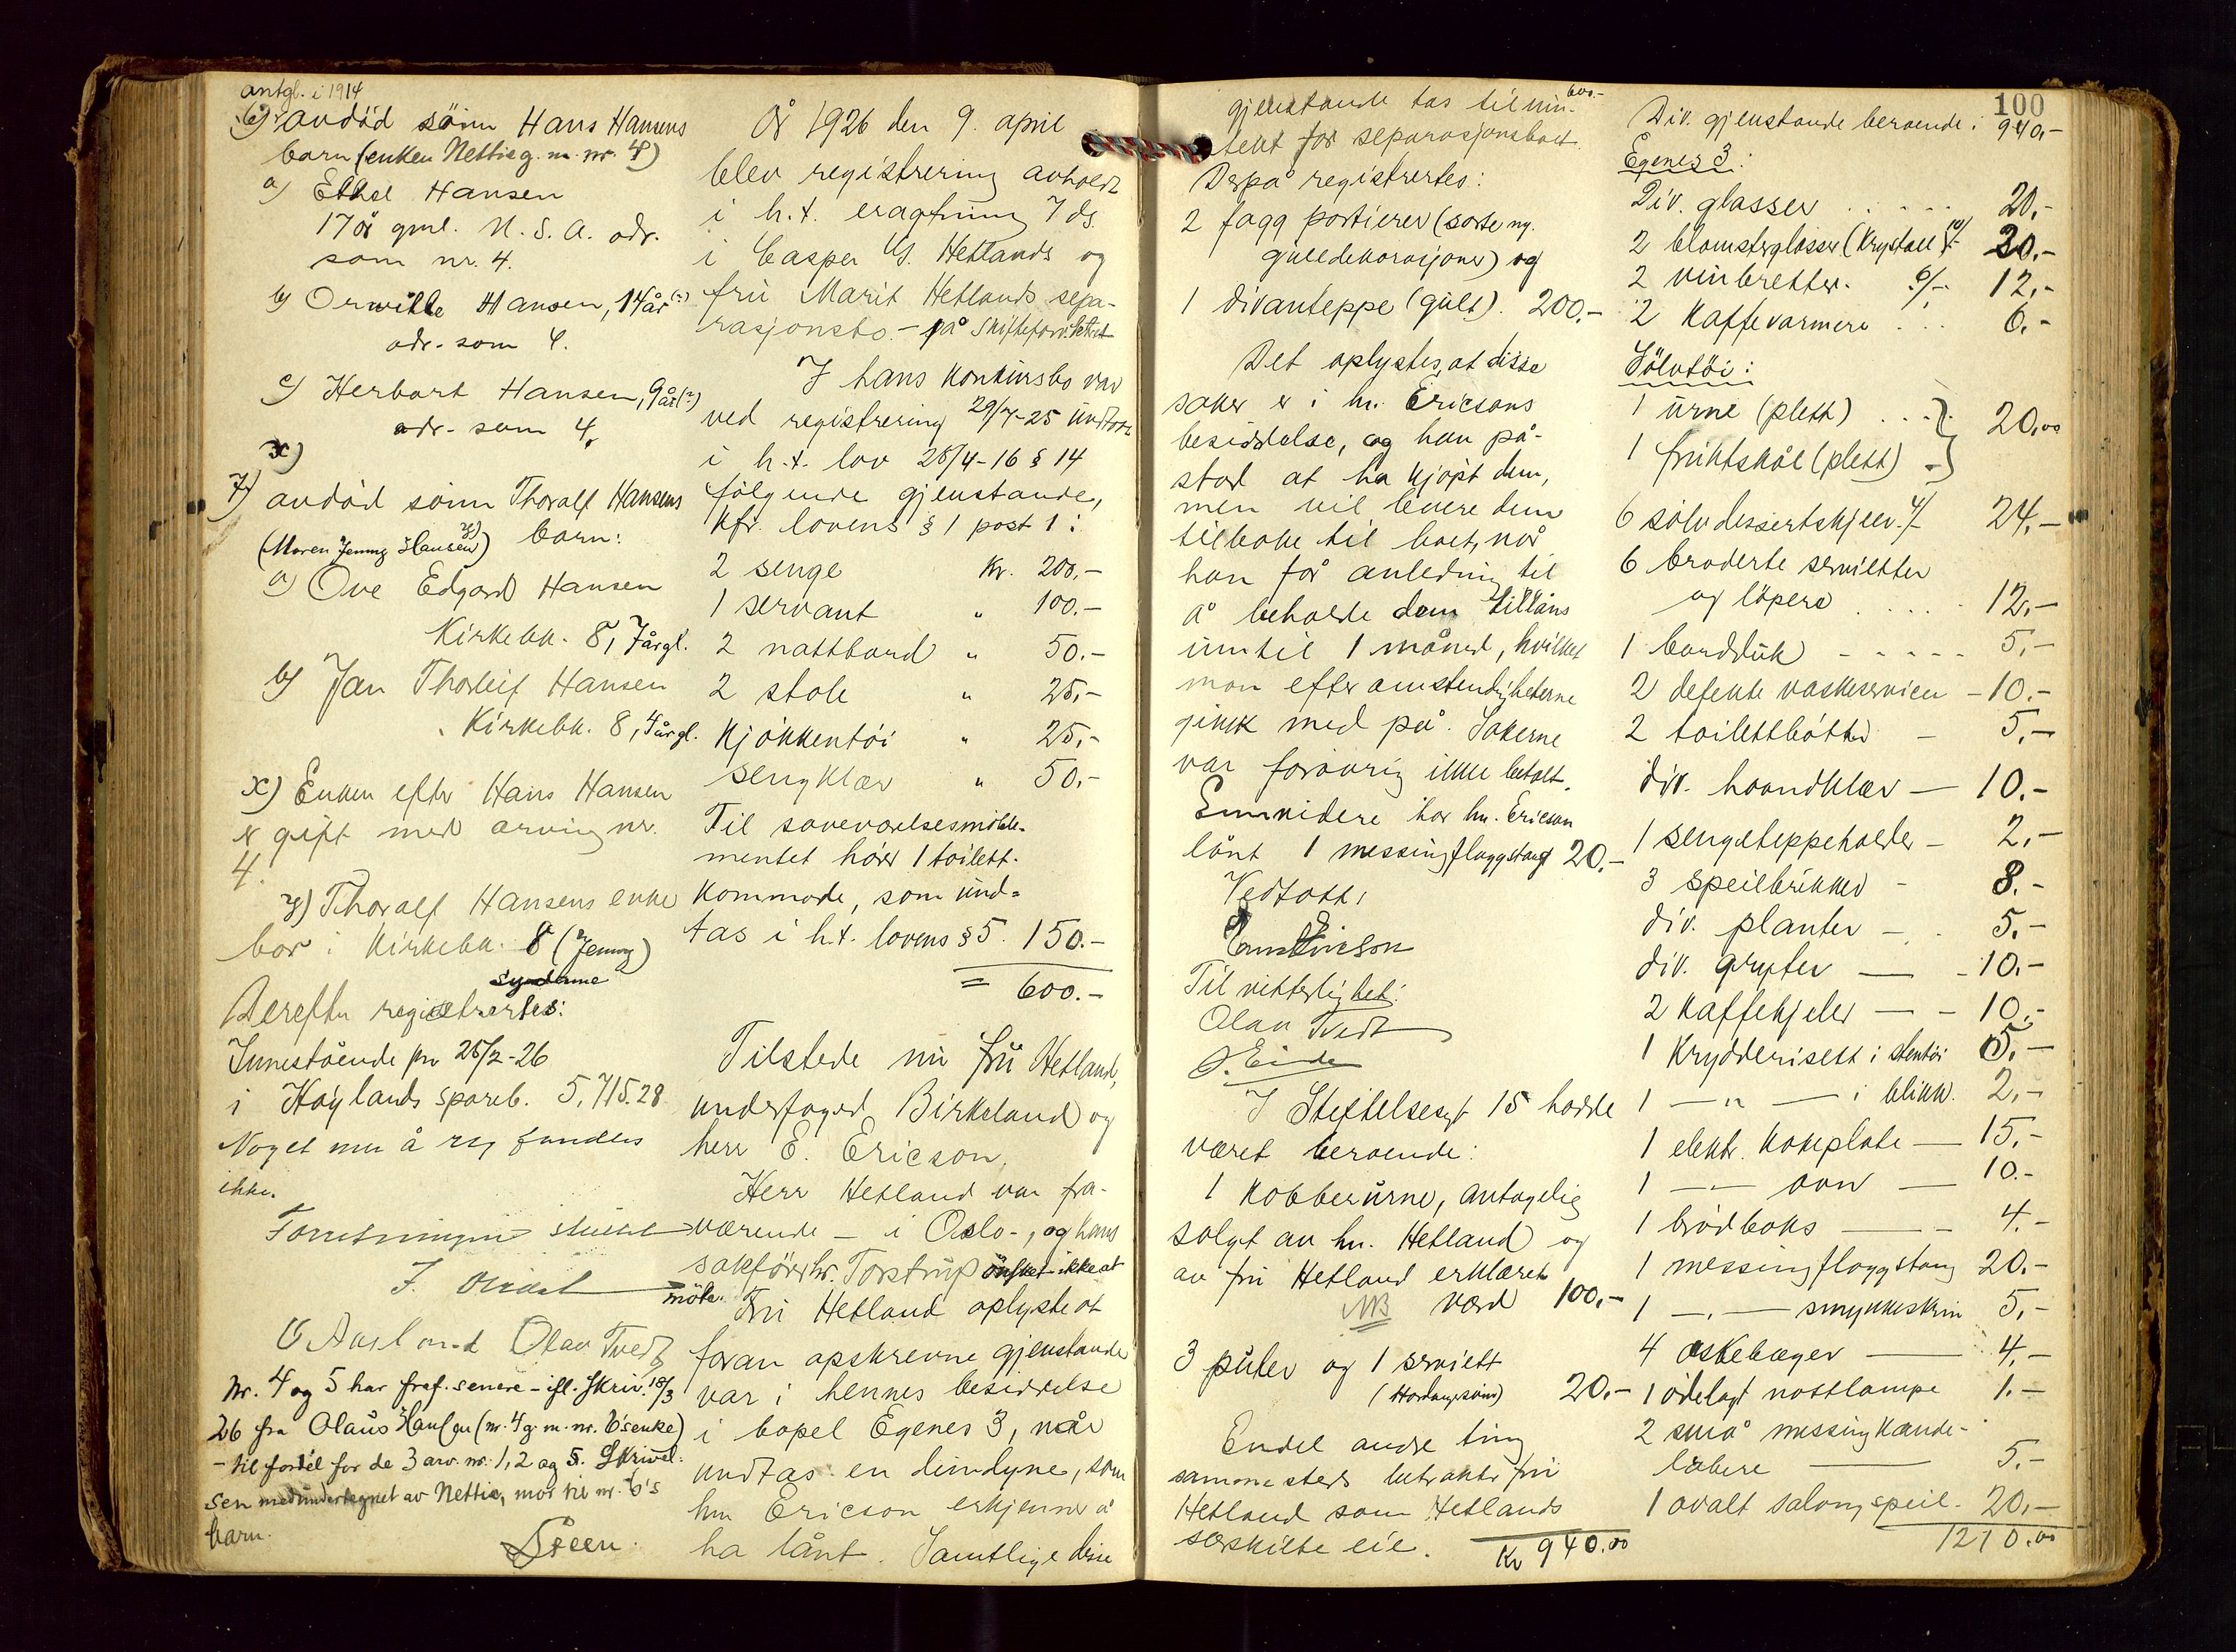 antgl. i 1914
6) avdöd sönn Hans Hansens
barn (enken Nettie g. m. nr. 4)
a) Ethel Hansen
17 år gml. U. S. A. adr.
som nr. 4.
b) Orwille Hansen, 14 år (?)
adr. som 4.
c) Herbart Hansen, 9 år (?)
adr. som 4.
x)
7) avdöd sönn Thoralf Hansens
(Maren Jenny Hansen y)) barn:
a) Ove Edgard Hansen
Kirkebk. 8, 7 årgl.
b) Jan Thorleif Hansen
Kirkebk. 8, 4 årgl.
x) Enken efter Hans Hansen
er gift med arving nr.
4.
y) Thoralf Hansens enke
bor i Kirkebk. 8 (Jenny)
Derefter registrertes:
Innestående pr 25/2-26
i Høylands spareb. 5,715.28
Noget mer å reg fandtes
ikke.
Forretningen sluttet
Aasland Olav Tvedt
Nr. 4 og 5 har fraf. senere - ifl. skriv. 18/3
26 fra Olaus Hansen (nr. 4 g. m. nr. 6's enke)
- til fordel for de 3 arv. nr. 1, 2 og 3. Skrivel-
sen medundertegnet av Nettie, mor til nr. 6's
barn.
Steen.
År 1926 den 9. april
blev registrering avholdt
i h.t. eragtning 7 ds.
i Casper G. Hetlands og
fru Marit Hetlands sepa-
rasjonsbo - på skifteforv. kontor
I hans konkursbo var
ved registrering 29/7-25 undtatt
i h.t. lov 25/4-16 § 14
følgende gjenstande,
kfr. lovens § 1 post 1:
2 senge Kr. 200,-
1 servant " 100.-
2 nattbord " 50.-
2 stole " 25,-
Kjökkentöi " 25,-
sengklær " 50,-
Til soveværelsesmöble-
mentet hörer 1 toilett-
kommode, som und-
tas i h.t. lovens § 5. 150.-
= 600.-
Tilstede nu fru Hetland,
underfoged Birkeland og
herr E. Ericson.
Herr Hetland var fra-
værende - i Oslo -, og hans
sakförer hr. Torstrup önsket ikke at
möte. Fru Hetland oplyste at
foran opskrevne gjenstande
var i hennes besiddelse
i bopel Egenes 3, når
undtas en dundyne, som
hr. Ericson erkjenner å
ha lånt. Samtlige disse
600.-
gjenstande tas til inn-
tekt for separasjonsboet.
Derpå registrertes:
2 fagg portierer (sorte m.
gulldekorasjoner) og
1 divanteppe (gult). 200,-
Det oplystes, at disse
saker er i hr. Ericsons
besiddelse, og han på-
stod at ha kjöpt dem,
men vil levere dem
tilbake til boet, når
han får anledning til
å beholde dem tillåns
inntil 1 måned, hvilket
man efter omstendighetene
gikk med på. Sakerne
var forövrig ikke betalt.
Enn videre har hr. Ericson
lånt 1 messingflaggstang 20,-
Vedtatt,
Til vitterlighet:
Olav Tvedt
S. Eide
I Stiftelsesgt 15 hadde
været beroende:
1 kobberurne, antagelig
solgt av hr. Hetland og
av fru Hetland erklæret
NB verd 100,-
3 puter og 1 serviett
(Hardangersöm) 20,-
Endel andre ting
sammesteds betraktr fru
Hetland som Hetlands
særskilte eie. Kr 940.00
100
Div. gjenstande beroende i 940,-
Egenes 3:
Div. glasser . . . . . 20,-
2 blomsterglasser (krystall) 10/- 20.-
2 vinbretter. 6/- 12,-
2 kaffevarmere . . . 6.-
Sölvtöi:
1 urne (plett) . . .
1 fruktskål (plett) - } 20,00
6 sölv dessertskjeer. 4/- 24,-
6 broderte servietter
og löpere . . . . . 12,-
1 bordduk - - - - - 5,-
2 defekte vaskeservicer - 10.-
2 toilettbötter - 5,-
div. haandklær - 10.-
1 sengeteppeholder - 2,-
3 speilbrikker - 8.-
div. planter - . 5.-
div. gryter - - 10.-
2 kaffekjeler - - 10,-
1 krydderisett i stentöi 5,-
1 - " - i blikk. 2,-
1 elektr. kokeplate - 15,-
1 - " - ovn - 10.-
1 brödboks - - 4.-
1 messingflaggstang 20.-
1 - " - smykkeskrin 5,-
4 askebæger - 4,-
1 ödelagt nattlampe 1.-
2 små messing kande-
labere - 5.-
1 ovalt salongspeil. 20,-
1210.00